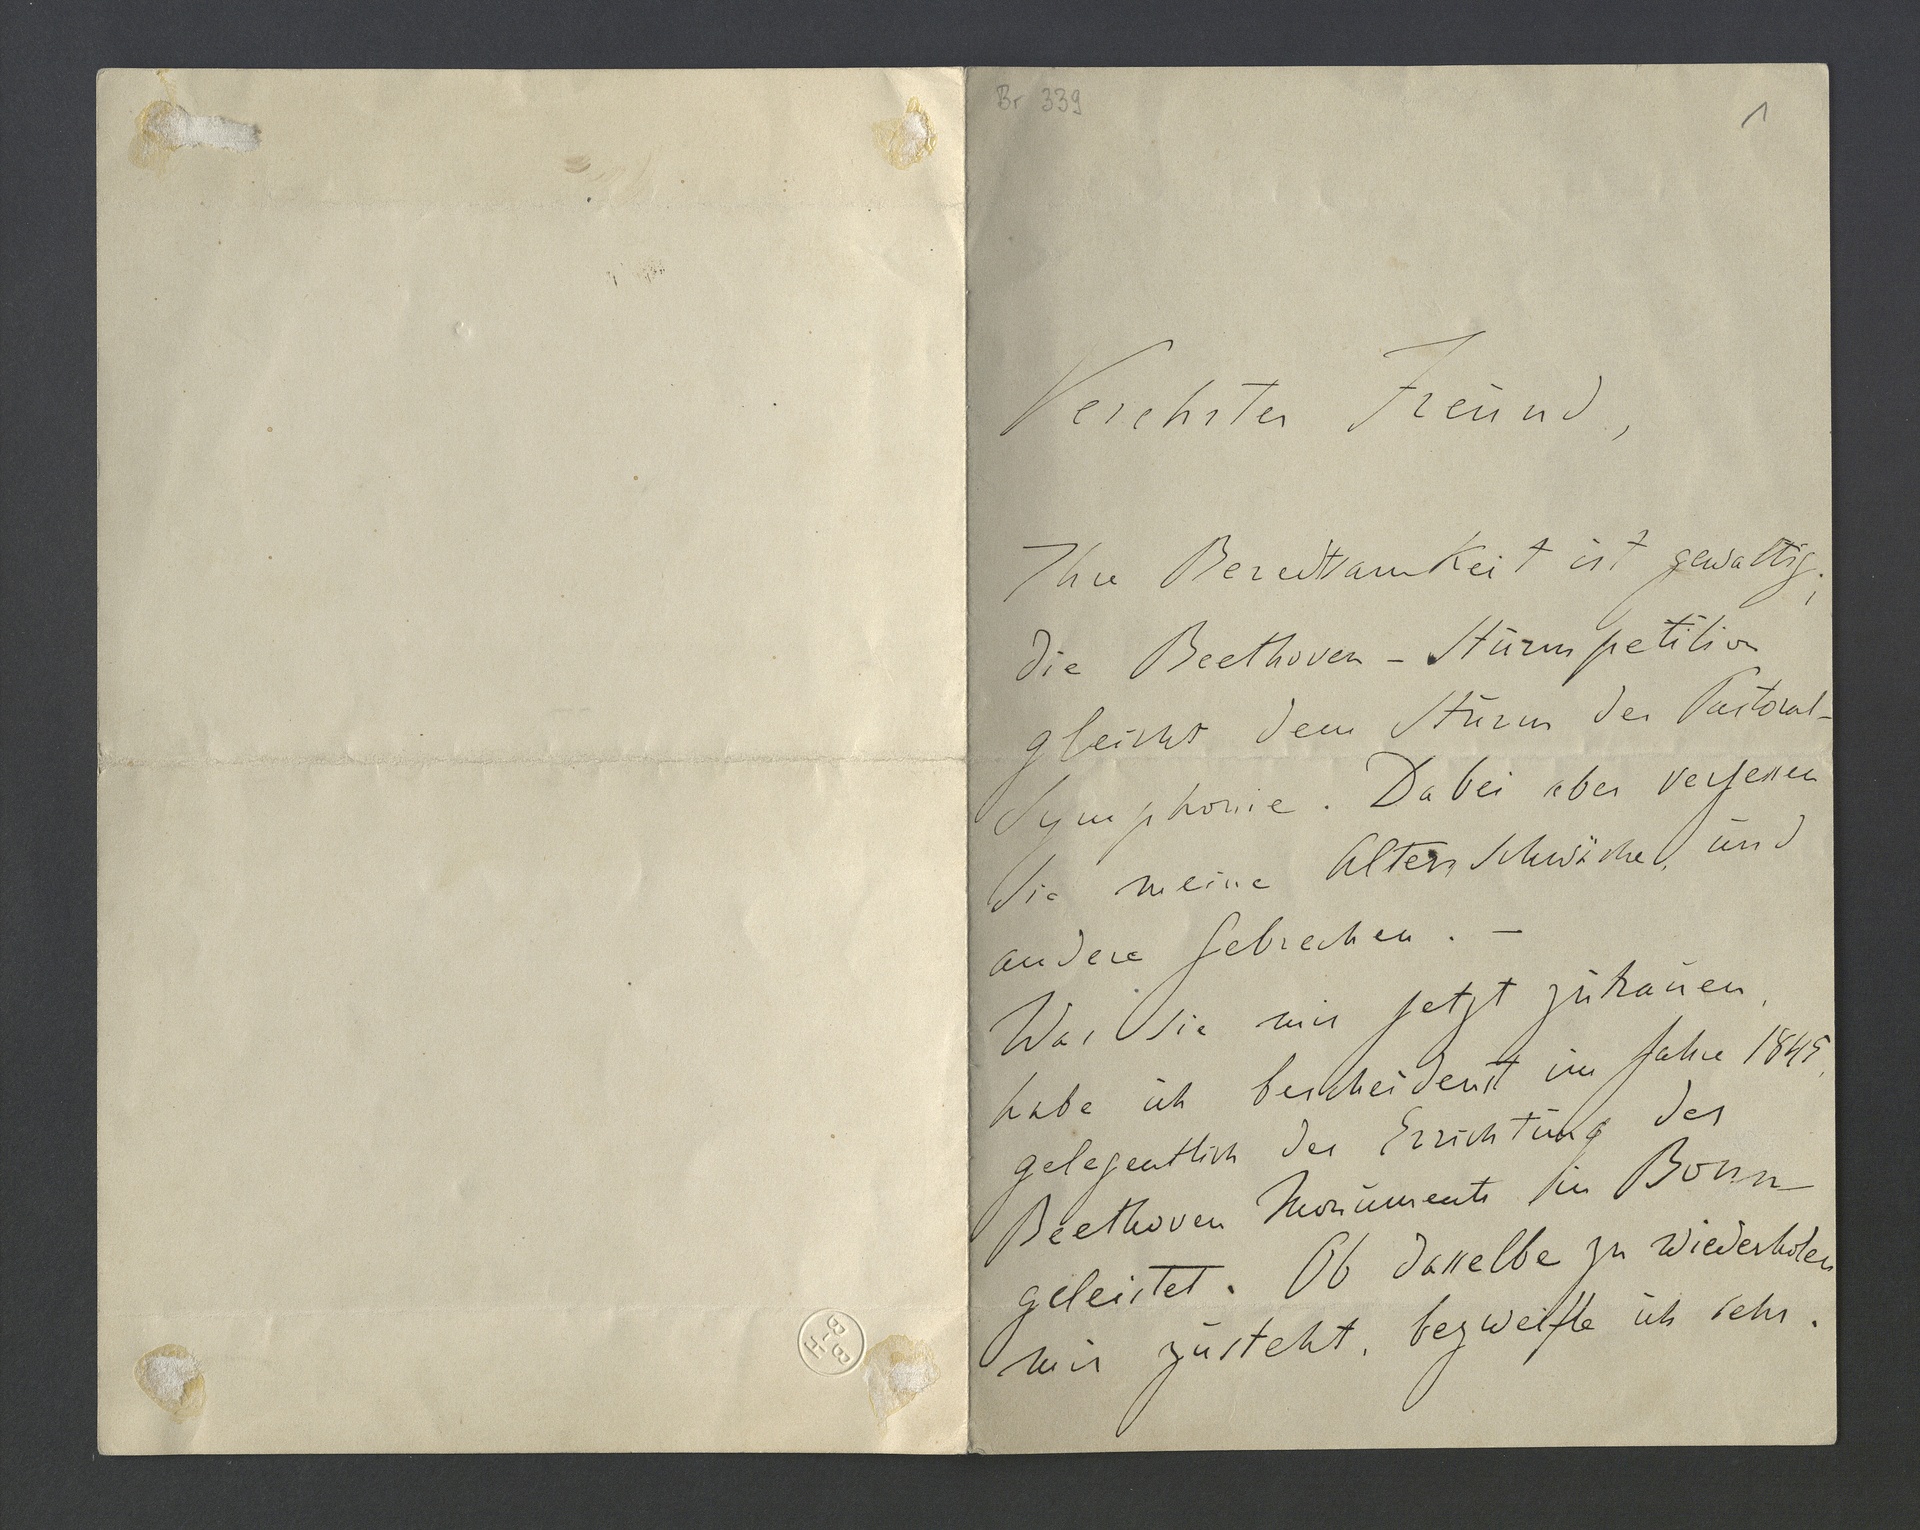 Br 339
1
Verehrter Freund,
Ihre Beredtsamkeit ist gewaltig;
die Beethoven-Sturmpetition
gleicht dem Sturm der Pastoral-
Symphonie. Dabei aber vergessen
Sie meine Altersschwäche, und
andere Gebrechen. —
Was Sie mir jetzt zutrauen,
habe ich bescheidenst im Jahre 1845,
gelegentlich der Errichtung des
Beethoven Monuments in Bonn
geleistet. Ob dasselbe zu wiederholen
mir zusteht, bezweifle ich sehr.
B-B
H